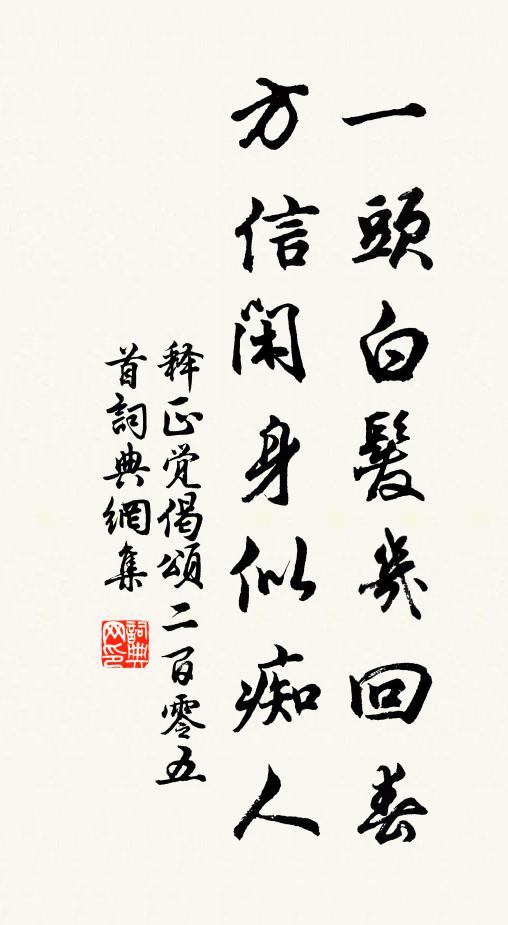 一頭白髮幾回春
方信閑身似痴人
释正覚偈頌二百零五
首詞典網集
詞典网印